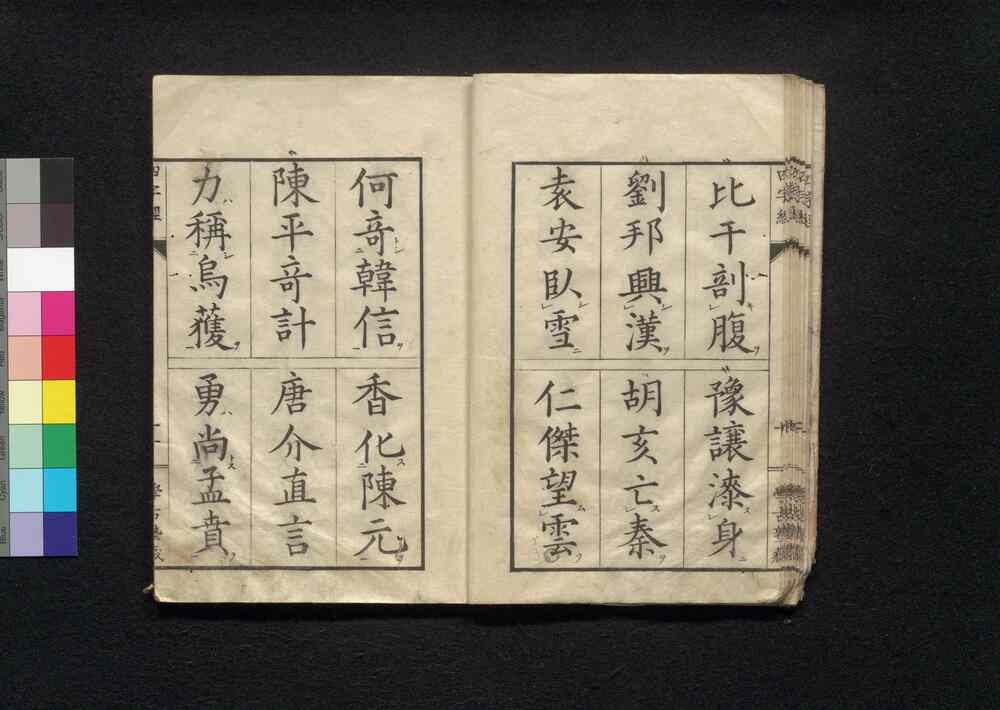 比干剖腹
豫讓漆身
劉邦興漢
胡亥亡秦
袁安臥雪
仁傑望雲
何竒韓信
香化陳元
陳平竒計
唐介直言
力稱烏獲
勇尚孟賁